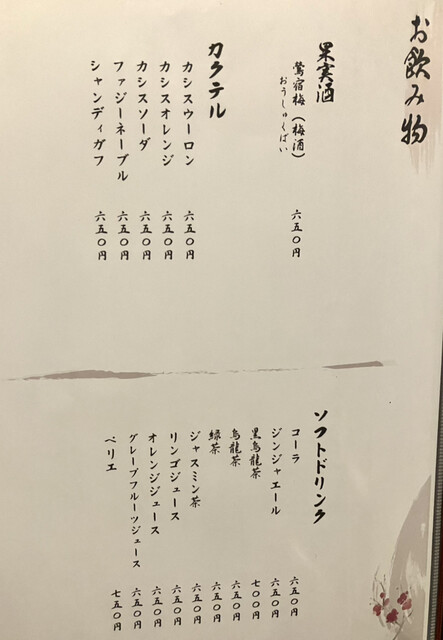 お飲み物
果実酒
鶯宿梅(梅酒) 六五〇円
おうしゅくばい
カクテル
カシスウーロン 六五〇円
カシスオレンジ 六五〇円
カシスソーダ 六五〇円
ファジーネーブル 六五〇円
シャンディガフ 六五〇円
ソフトドリンク
コーラ 六五〇円
ジンジャエール 六五〇円
黒烏龍茶 七〇〇円
烏龍茶 六五〇円
緑茶 六五〇円
ジャスミン茶 六五〇円
リンゴジュース 六五〇円
オレンジジュース 六五〇円
グレープフルーツジュース 六五〇円
ペリエ 七五〇円